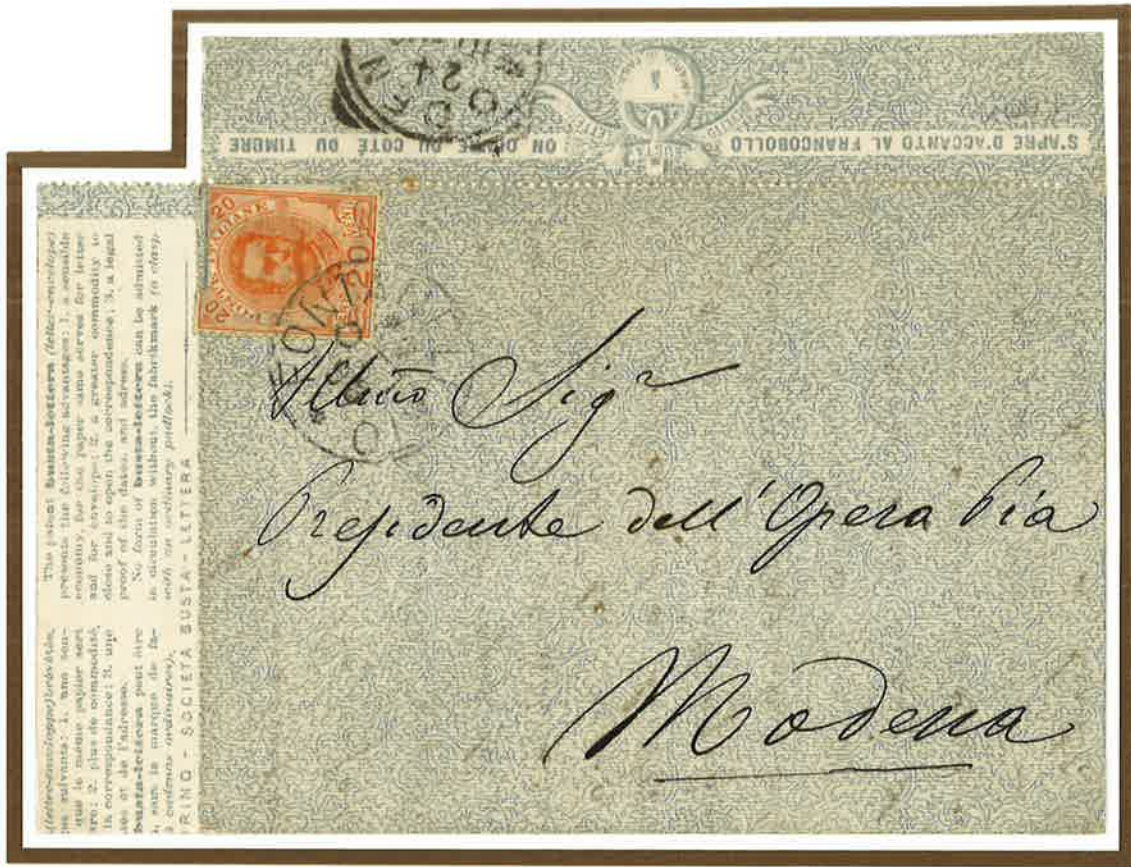 S'APRE D'ACCANTO AL FRANCOBOLLO
ON OUVRE DU COTÉ DU TIMBRE
MODEN
10 24
20
20
20
POSTE ITALIANE
10
Illmo Sigr
Presidente dell' Opera Pia
Modena
The patent busta-lettera (letter-envelope)
presents the following advantages: 1. a sensible
economy, for the paper same serves for letter
and for envelope; 2. a greater commodity to
close and to open the correspondence; 3. a legal
proof of the dates, and adress.
No form of busta-lettera can be admitted
in circulation without the fabrikmark (a clasp,
with an ordinary padlock).
(lettre-enveloppe) brévétée,
suivants: 1. une
que le même papier sert
2. plus de commodité,
la correspondance; 3. une
et de l'adresse.
busta-lettera peut être
sans la marque de fa-
cadenas ordinaires).
RINO - SOCIETÀ BUSTA - LETTERA